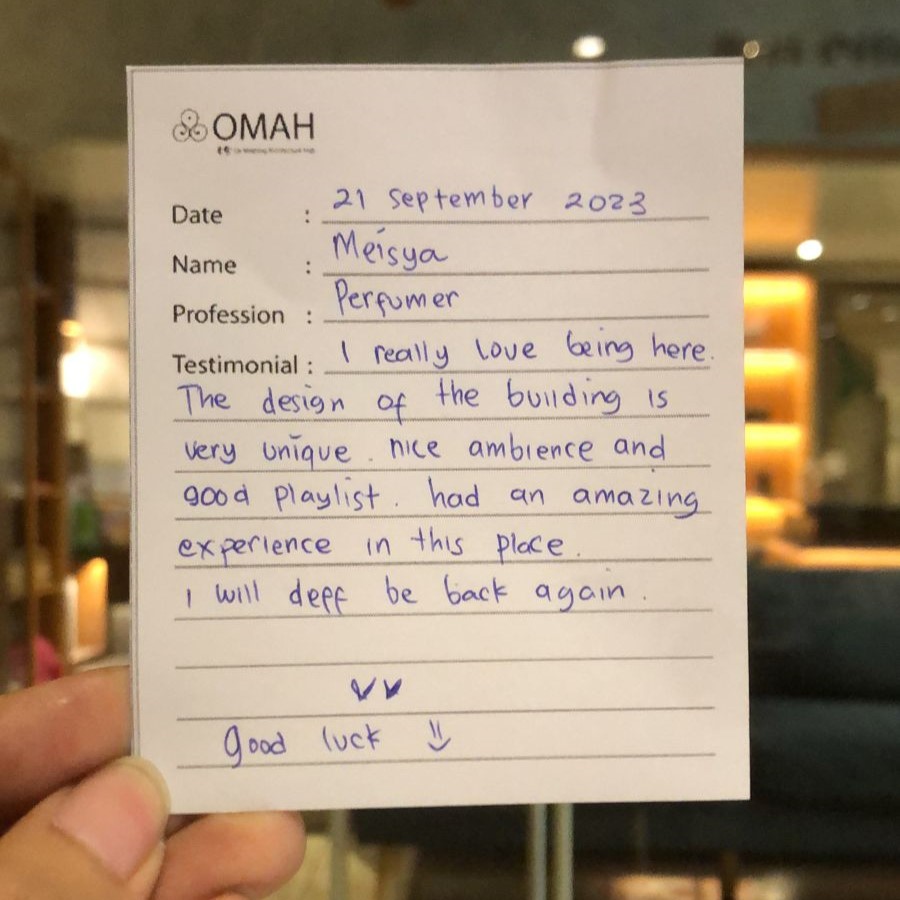 OMAH
Date : 21 September 2023
Name : Meisya
Profession : Perfumer
Testimonial : I really love being here.
The design of the building is
very unique. nice ambience and
good playlist. had an amazing
experience in this place.
I will deff be back again.
good luck